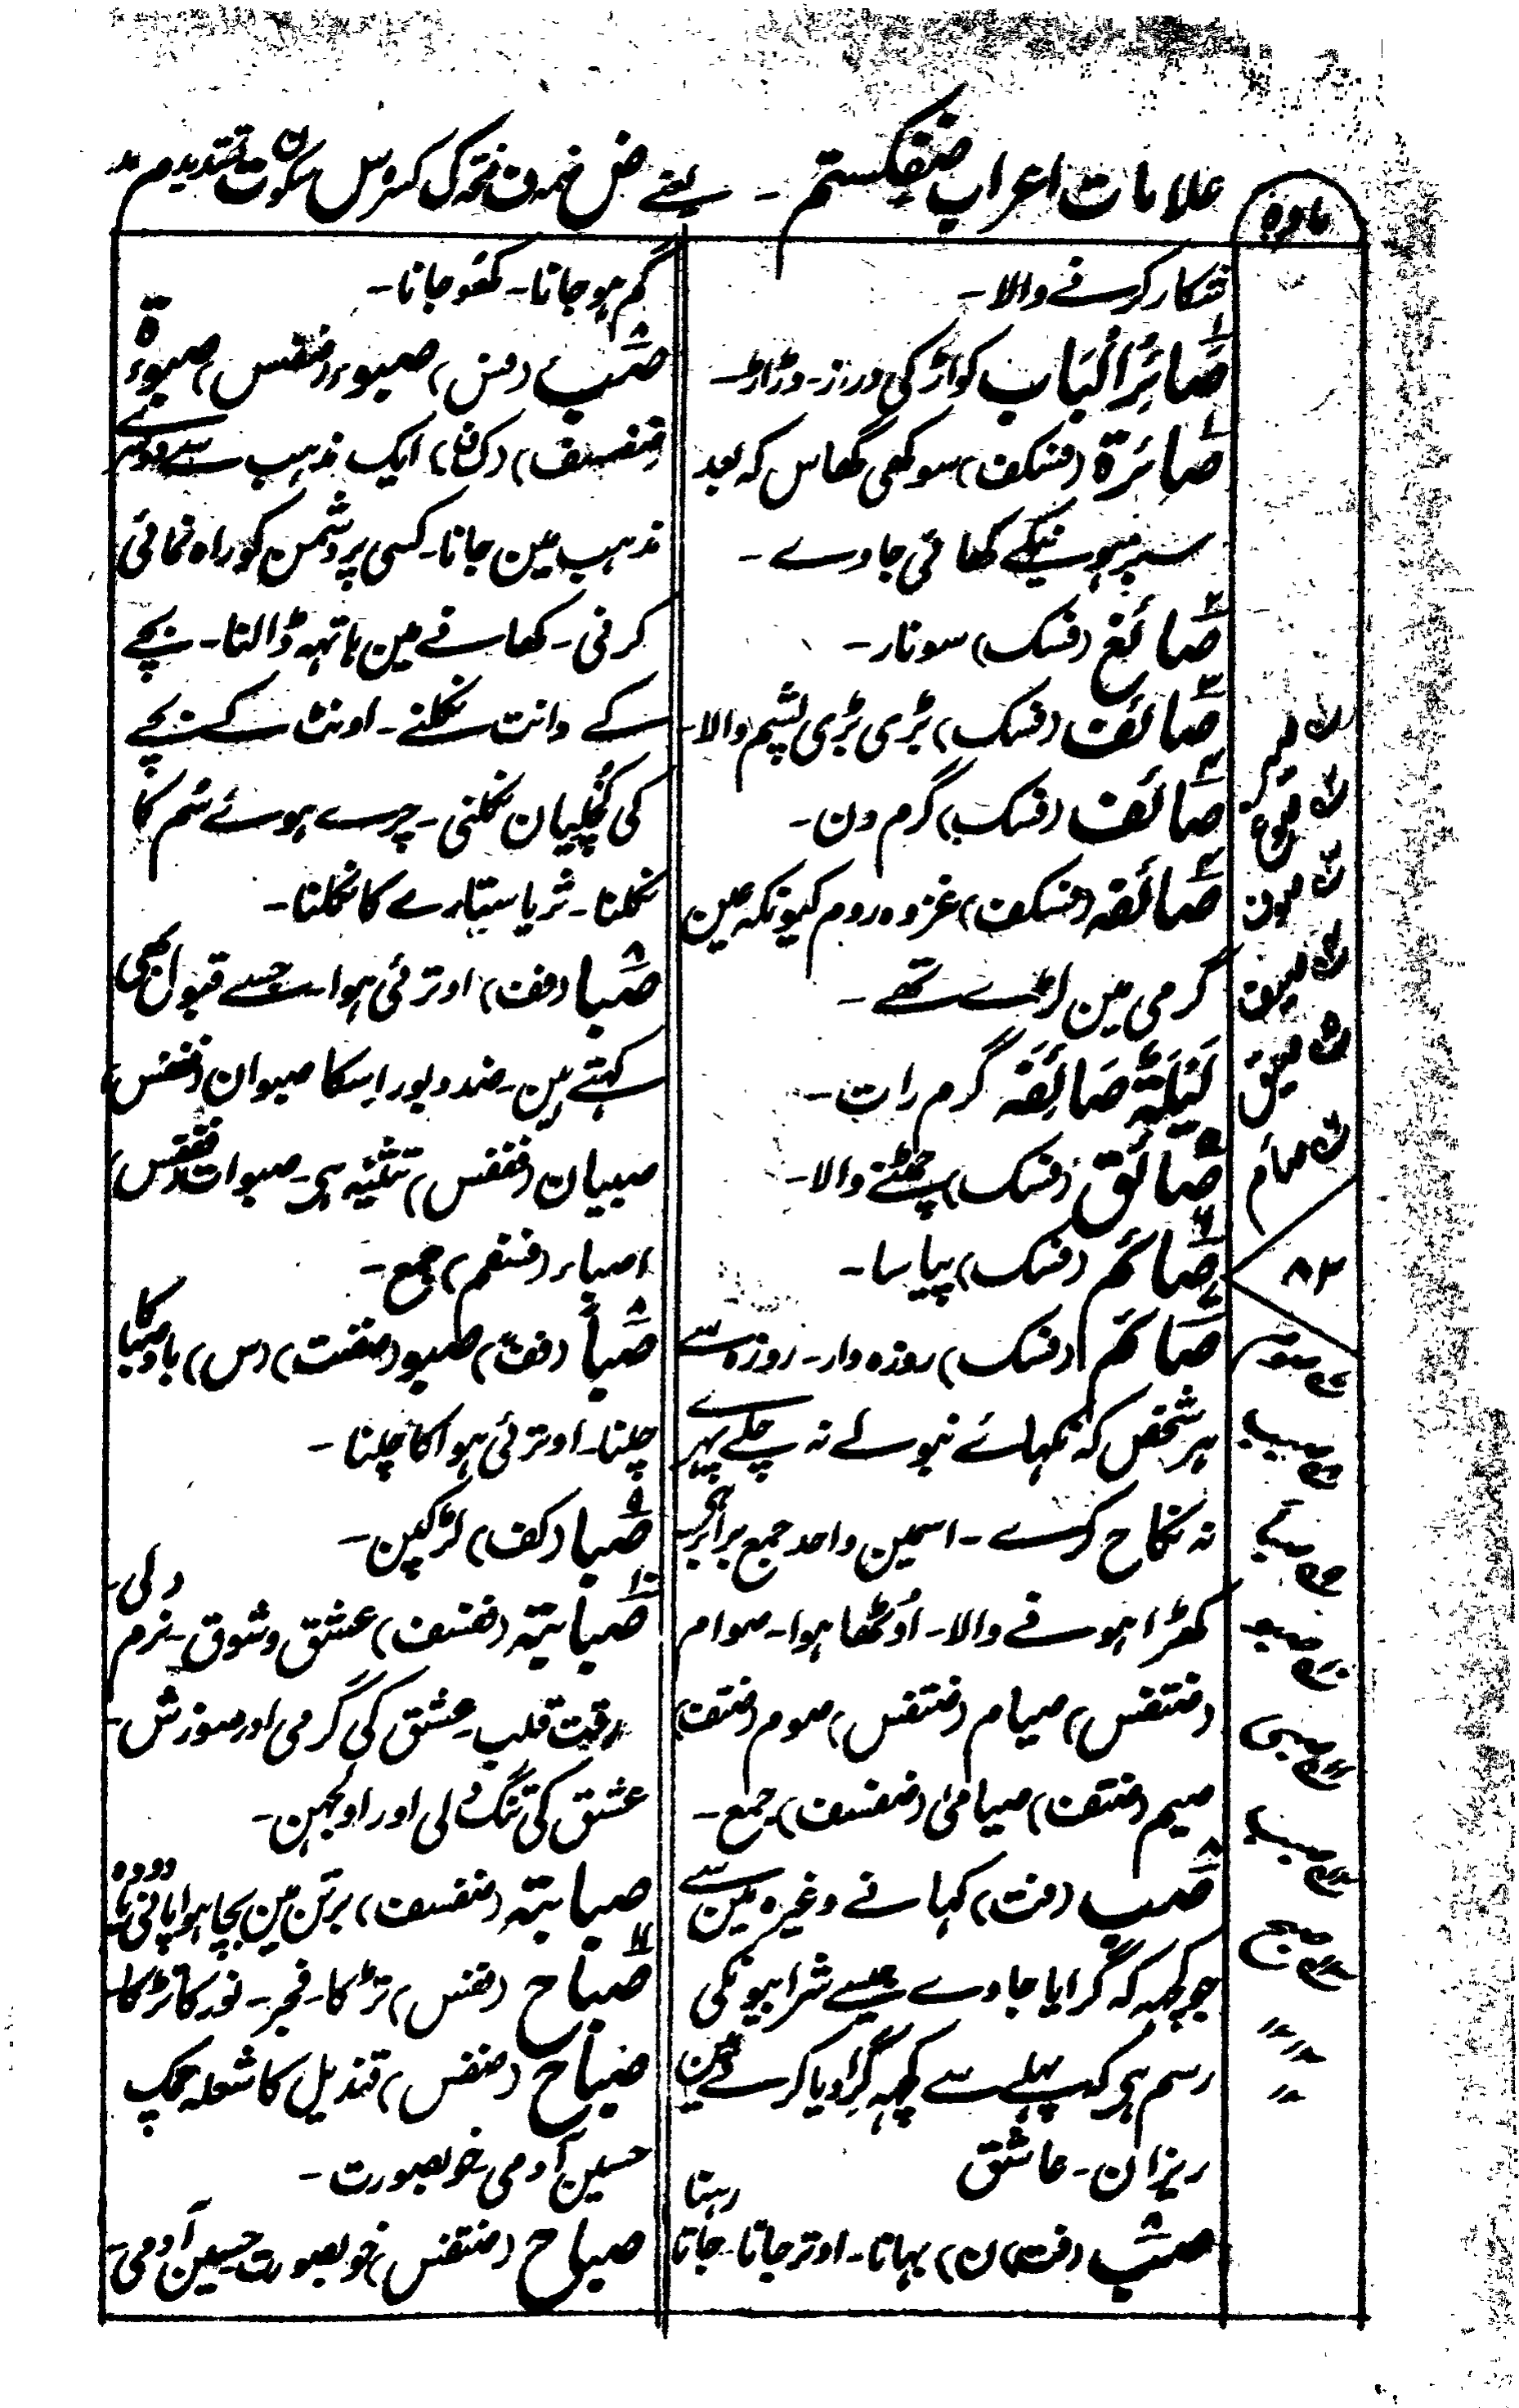 علامات اعراب ضفکستم ۔ یعنے ض ضمہ ف فتحہ ک کسرہ س سکون ت تشدید م مد
مادہ
شکار کرنے والا۔
صَائِرُ الْبَاب کواڑ کی دراز۔ وڑاڑ۔
صَائِرَة (فسکف) سوکھی گھاس کہ بعد
سبز ہونیکے کھائی جاوے ۔
صَائغ (فسک) سونار۔
صَائف (فسک) بڑی بڑی پشم والا۔
صَائف (فسک) گرم دن۔
صَائفه (فسکف) غزوہ روم کیونکہ عین
گرمی مین لڑے تھے ۔
لَيْلَةٌ صَائِفَه گرم رات۔
صَائق (فسک) چمٹنے والا۔
صَائم (فسک) پیاسا۔
صَائم (فسک) روزہ دار۔ روزہ سے
ہر شخص کہ نکھائے نبولے نہ چلے پہرے
نہ نکاح کرے ۔ اسمین واحد جمع برابر ہی۔
کھڑا ہونے والا۔ اوٹھا ہوا۔ صوام
(ضتفس) صیام (ضتفس) صوم (ضتف)
صیم (ضتف) صیامیٰ (ضفسف) جمع۔
صَب (فت) کہانے وغیرہ مین سے
جو کچہہ کہ گرایا جاوے جیسے شرابیونکی
رسم ہی کہ پہلے سے کچہہ گرادیا کرتے ہین
ریزان۔ عاشق
صَب (فت) (ن) بہانا۔ اوتر جانا۔ جاتا رہنا
گم ہو جانا۔ کھو جانا۔
صَب (فس) صبوء (ضفس) صبوءة
(ضفسف) (ک ف) ایک مذہب سے دوسرے
مذہب مین جانا۔ کسی پر دشمن کو راہ نمائی
کرنی۔ کھانے مین ہاتہہ ڈالنا۔ بچے
کے دانت نکلنے ۔ اونٹ کے بچے
کی کچلیان نکلنی۔ چرے ہوئے سُم کا
نکلنا۔ ثریا ستارے کا نکلنا۔
صَبا (فف) اوترئی ہوا۔ جسے قبول بھی
کہتے ہین۔ ضد دبور اسکا صبوان (فففس)
صبیان (فففس) تثنیہ ہی۔ صبوات (ففقس)
اصباء (فسفم) جمع۔
صَبأ (فف) صبو (ضفت) (س) باد صبا کا
چلنا۔ اوترئی ہوا کا چلنا ۔
صَبا (کف) لڑکپن۔
صَبابتہ (ففسف) عشق و شوق۔ نرم دلی۔
رقت قلب۔ عشق کی گرمی اور سوزش۔
عشق کی تنگدلی اور اولجہن۔
صبابتہ (ضفسف) برتن مین بچا ہوا پانی یا دودہ
صَباح (ففس) تڑکا۔ فجر۔ نور کا تڑکا۔
صَباح (ضفس) قندیل کا شعلہ چمک
حسین آدمی خوبصورت ۔
صباح (ضتفس) خوبصورت حسین آدمی۔
۸۳